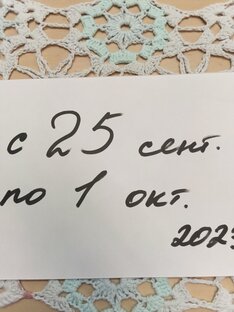 с 25 сент.
по 1 окт.
2023